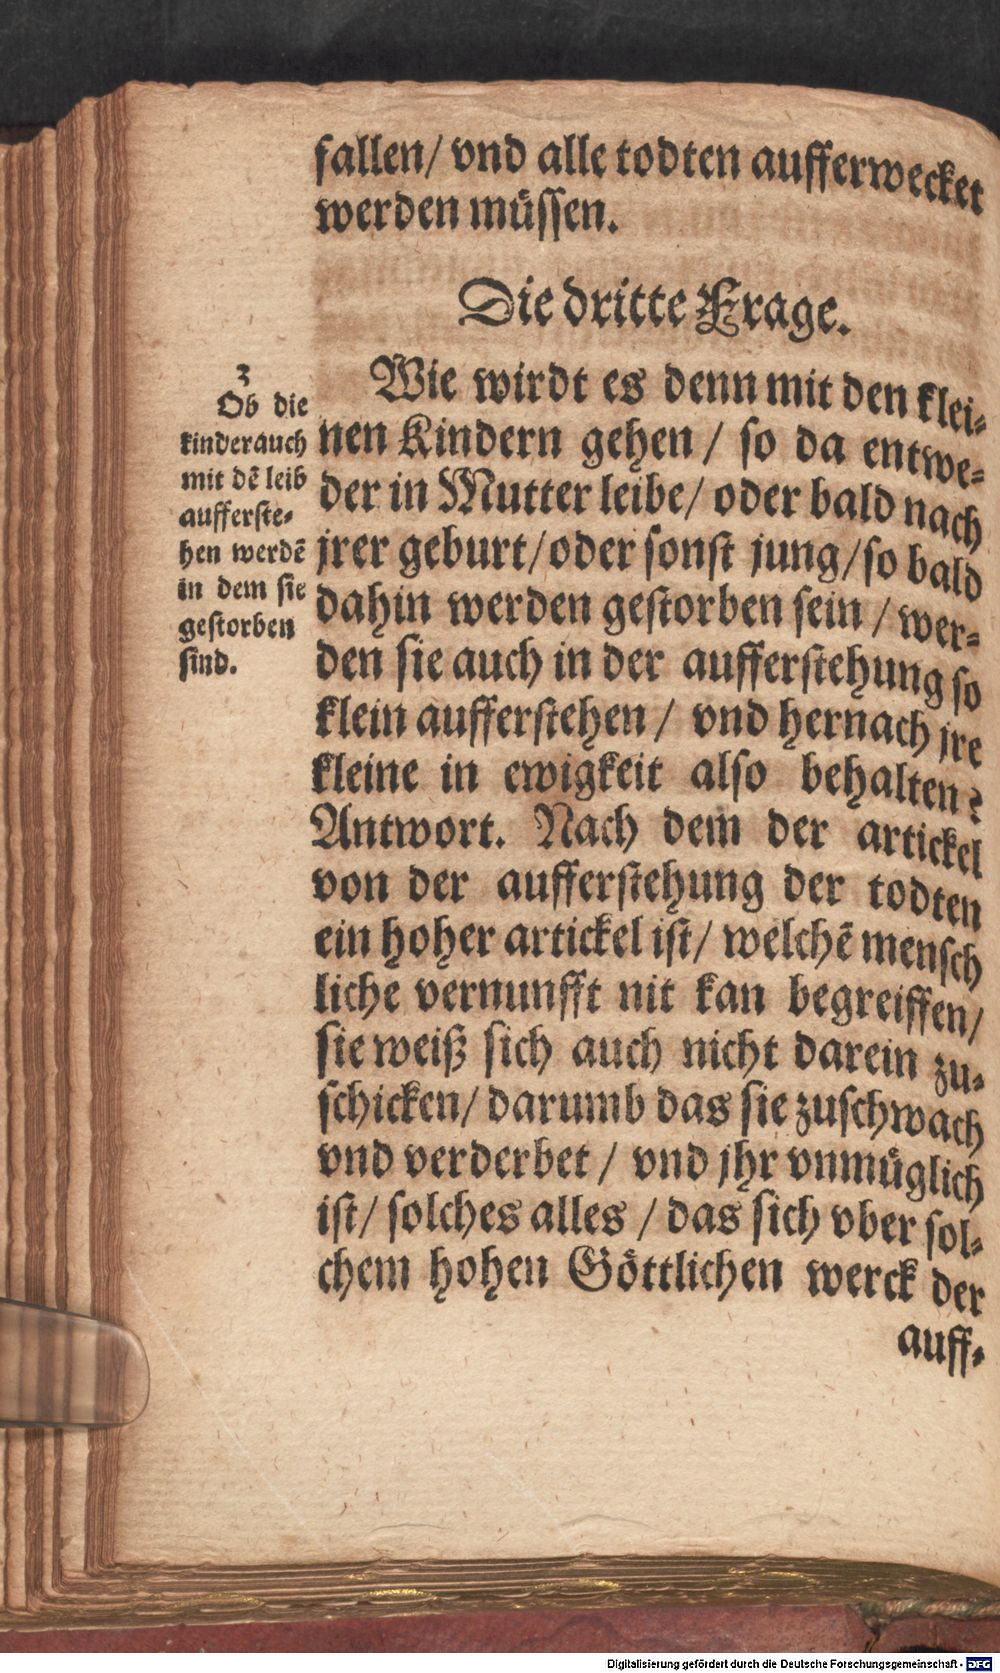 fallen/ vnd alle todten aufferwecket
werden müssen.
Die dritte Frage.
3
Ob die
kinder auch
mit dẽ leib
aufferste-
hen werdẽ
in dem sie
gestorben
sind.
Wie wirdt es denn mit den klei-
nen Kindern gehen / so da entwe-
der in Mutter leibe/ oder bald nach
jrer geburt/oder sonst jung/so bald
dahin werden gestorben sein / wer-
den sie auch in der aufferstehung so
klein aufferstehen / vnd hernach jre
kleine in ewigkeit also behalten?
Antwort. Nach dem der artickel
von der aufferstehung der todten
ein hoher artickel ist/ welchẽ mensch
liche vernunfft nit kan begreiffen/
sie weiß sich auch nicht darein zu-
schicken/ darumb das sie zuschwach
vnd verderbet / vnd jhr vnmüglich
ist/ solches alles / das sich vber sol-
chem hohen Göttlichen werck der
auff-
Digitalisierung gefördert durch die Deutsche Forschungsgemeinschaft - DFG